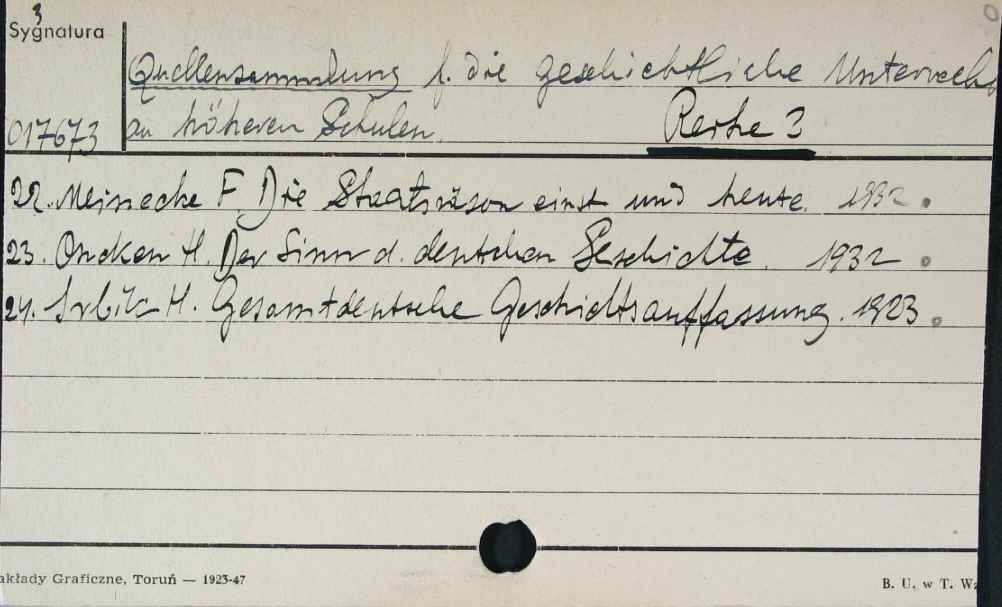 3
Sygnatura
Quellensammlung f. die geschichtliche Unterrecht
017673 an höheren Schulen. Reihe 3
22. Meinecke F. Die Staatsräson einst und heute. 1932.
23. Oncken H. Der Sinn d. deutschen Geschichte. 1932
24. Srbik H. Gesamtdeutsche Geschichtsauffassung. 1923
akłady Graficzne, Toruń — 1923-47
B. U. w T. Wz